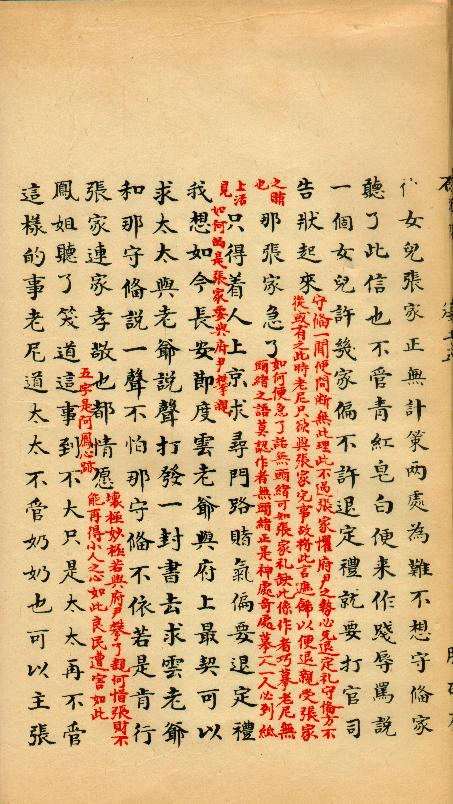 女兒張家正無計策两處為難不想守俻家
聽了此信也不管青紅皂白便来作踐辱罵說
一個女兒許幾家偏不許退定禮就要打官司
告狀起来
守俻一聞便問斷無此理此不過張家懼府尹之勢必先退定礼守俻方不
從或有之此時老尼只欲與張家完事故將此言遮餙以便退親受張家
之賄
也
那張家急了
如何便急了話無頭緒可知張家礼缺此係作者巧摹老尼無
頭緒之語莫認作者無頭緒正是神處奇處摹一人一人必到紙
上活
見
只得着人上京求尋門路賭氣偏要退定禮
如何的是張家要與府尹攀親
我想如今長安節度雲老爺與府上最契可以
求太太與老爺說聲打發一封書去求雲老爺
和那守俻說一聲不怕那守俻不依若是肯行
張家連家孝敬也都情愿
壞極妙極若與府尹攀了親何惜張財不
能再得小人之心如此良民遭害如此
五字是阿鳳心跡
鳳姐聽了笑道這事到不大只是太太再不管
這樣的事老尼道太太不管奶奶也可以主張